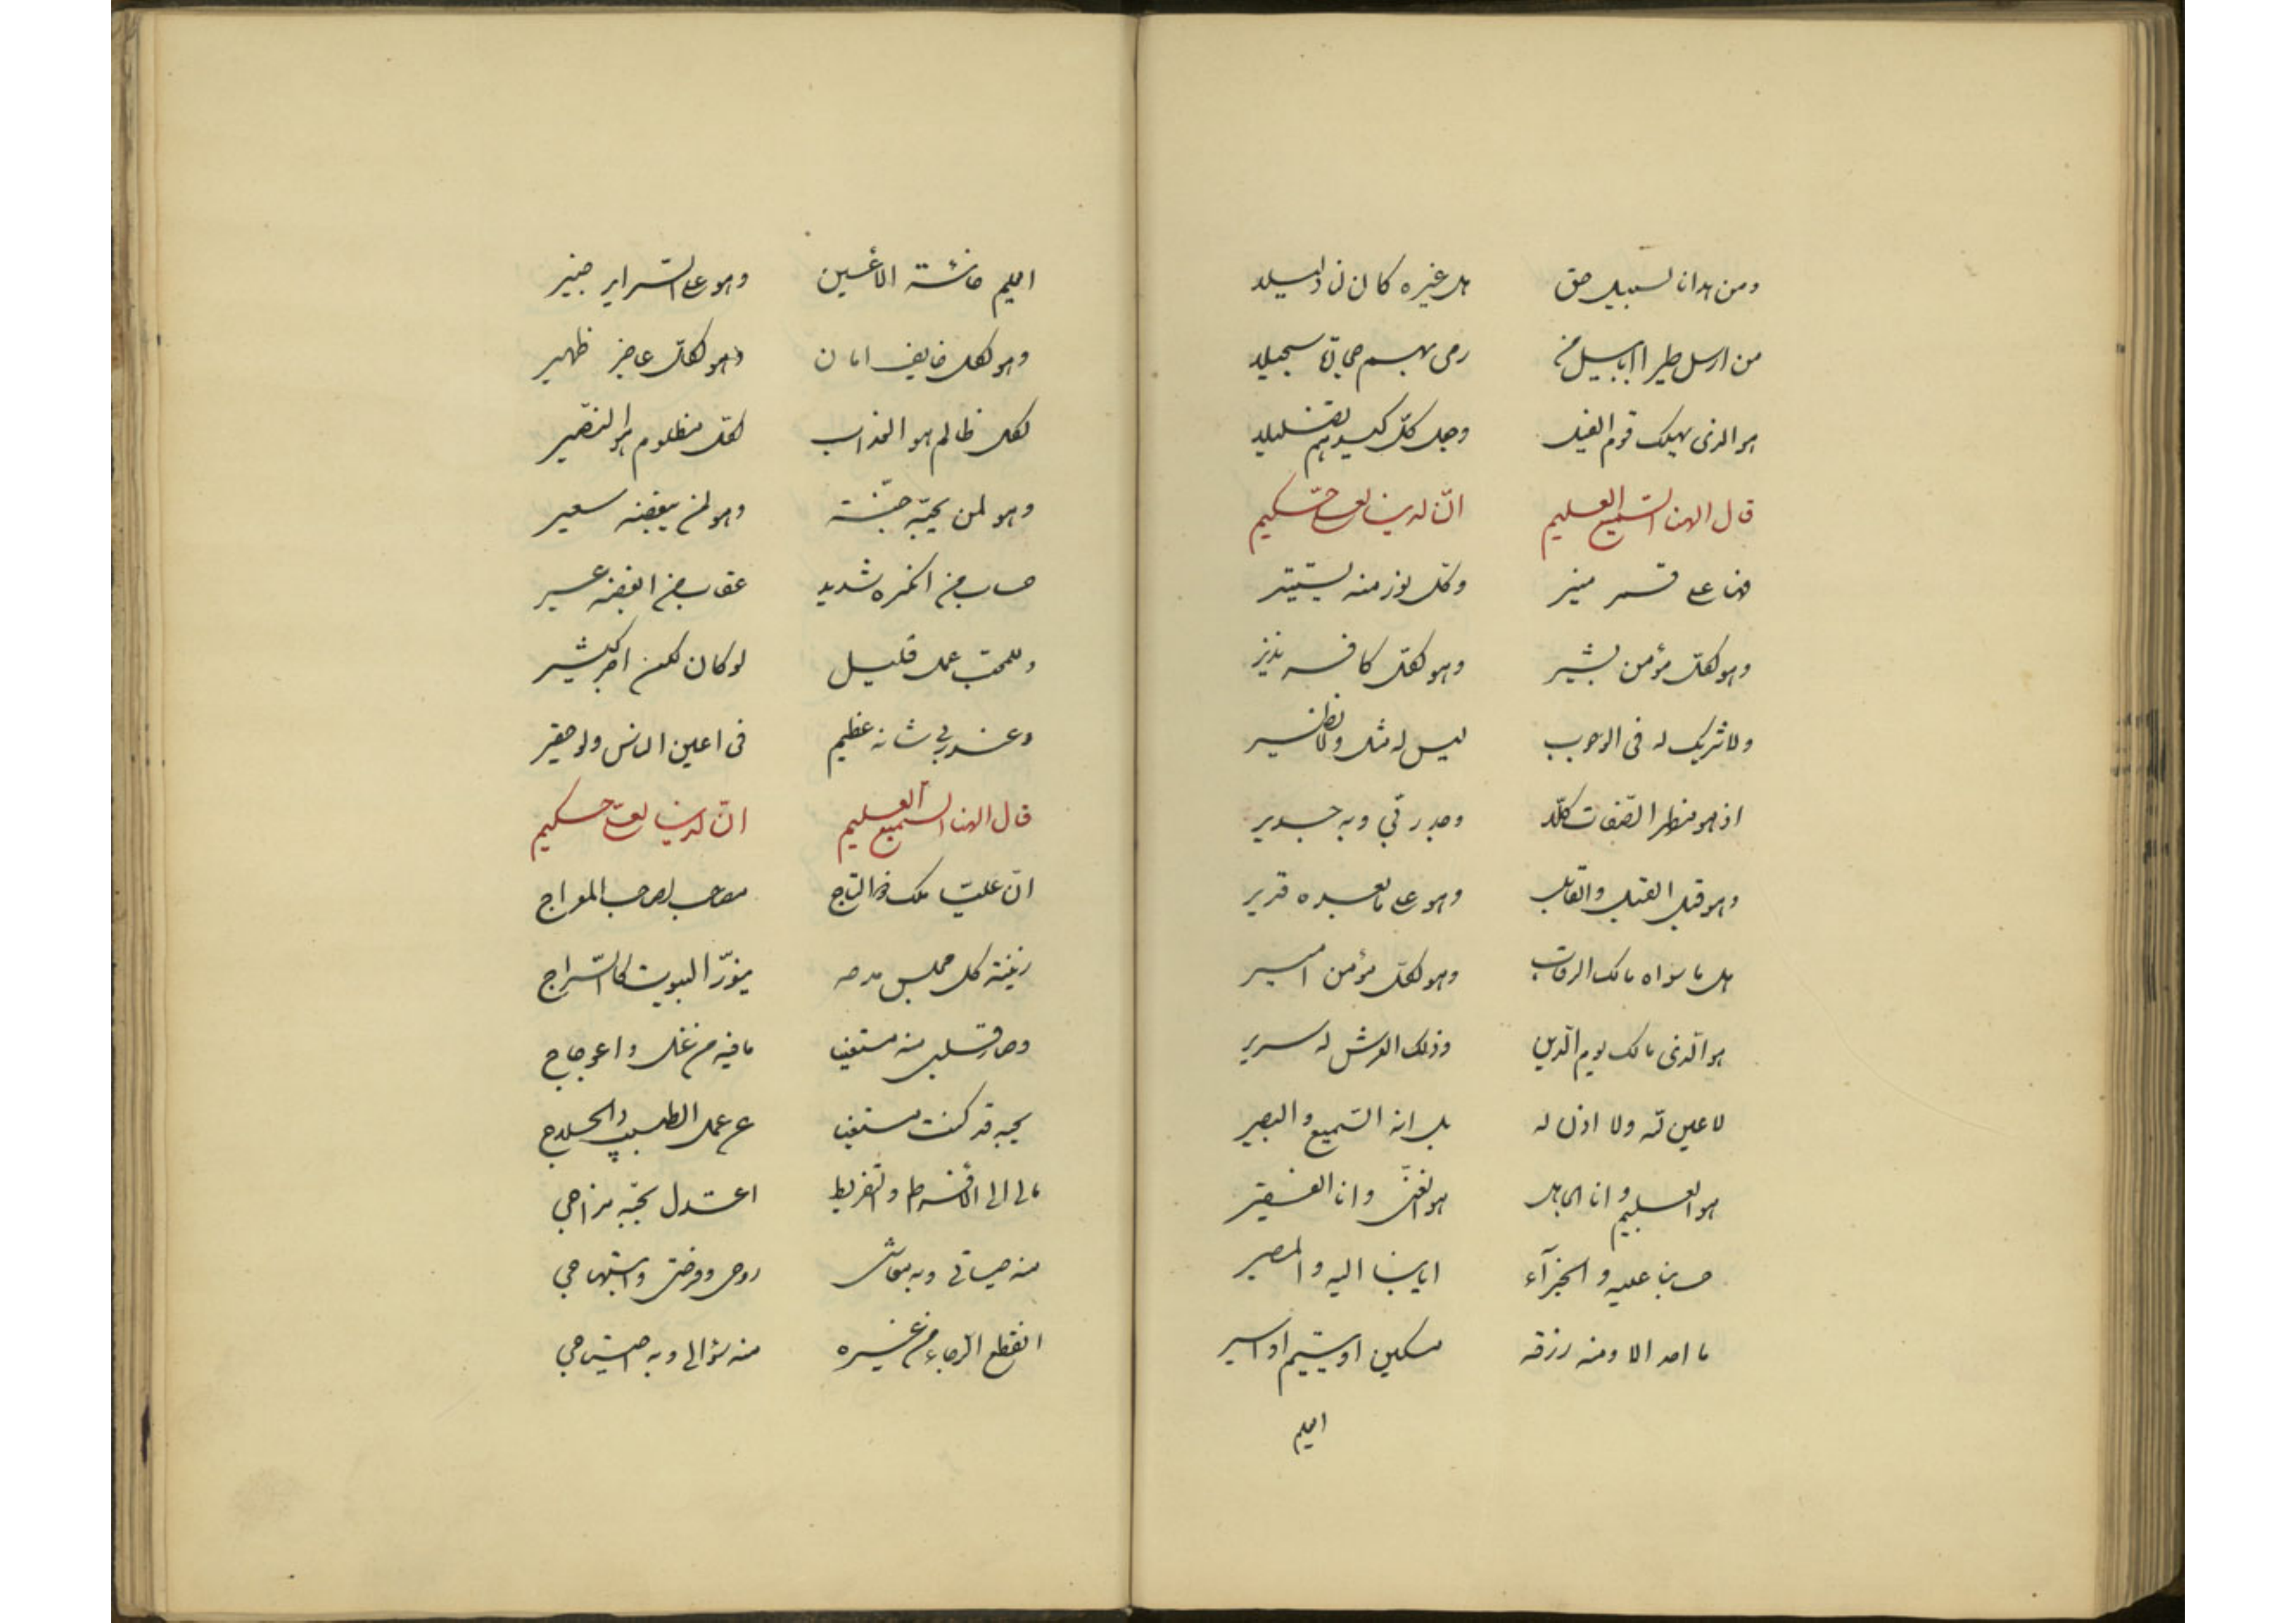 ومن هدانا لسبيل حق هل غيره كان لنا دليلا
من ارسل طيرا ابابيل من رمى بهم سجيلا
هو الذى يهلك قوم الفيل وجعل كل كيدهم تضليلا
قال الهنا السميع العليم ان لدينا لعلى حكيم
على قمر منير وكل نور منه يستنير
وهو لكل مؤمن بشير وهو لكل كافر نذير
ولا شريك له فى الوجوب ليس له مثل ولا نظير
اذ هو مظهر الصفات كلها ربى وبه جدير
وهو قبل القبل وهو على ما بعده قدير
هل ما سواه مالك الرقاب وهو لكل مؤمن امير
هو الذى مالك يوم الدين وذلك العرش له سرير
لا عين له ولا اذن له بل انه السميع والبصير
هو العليم وانا الجاهل هو الغنى وانا الفقير
حسابنا عليه والجزآء ايابنا اليه والمصير
ما احد الا ومنه رزقه مسكين او يتيم او اسير
اليم
اليم خائنة الأعين وهو على السراير خبير
وهو لكل خايف امان وهو لكل عاجز ظهير
لكل ظالم هو العذاب لكل مظلوم هو النصير
وهو لمن يحبه جنة وهو لمن يبغضه سعير
حساب من انكره شديد عقاب من ابغضه عسير
وللمحب عمل قليل لو كان لكن اجر كثير
وعند ربى شانه عظيم فى اعين الناس ولو حقير
قال الهنا السميع العليم ان لدينا لعلى حكيم
ان عليا ملك ذو التاج مصاحب لصاحب المعراج
زينة كل مجلس مدحه ينور البيوت كالسراج
وصار قلبى منه مستقيما ما فيه من غل واعوجاج
بحبه قد كنت مستغنيا عن عمل الطبيب والعلاج
مالى الى الأفراط والتفريط اعتدل بحبه مزاجى
منه حياتى وبه معاشى روحى وفرحتى وابتهاجى
انقطع الرجاء من غيره منه سؤالى وبه احتياجى